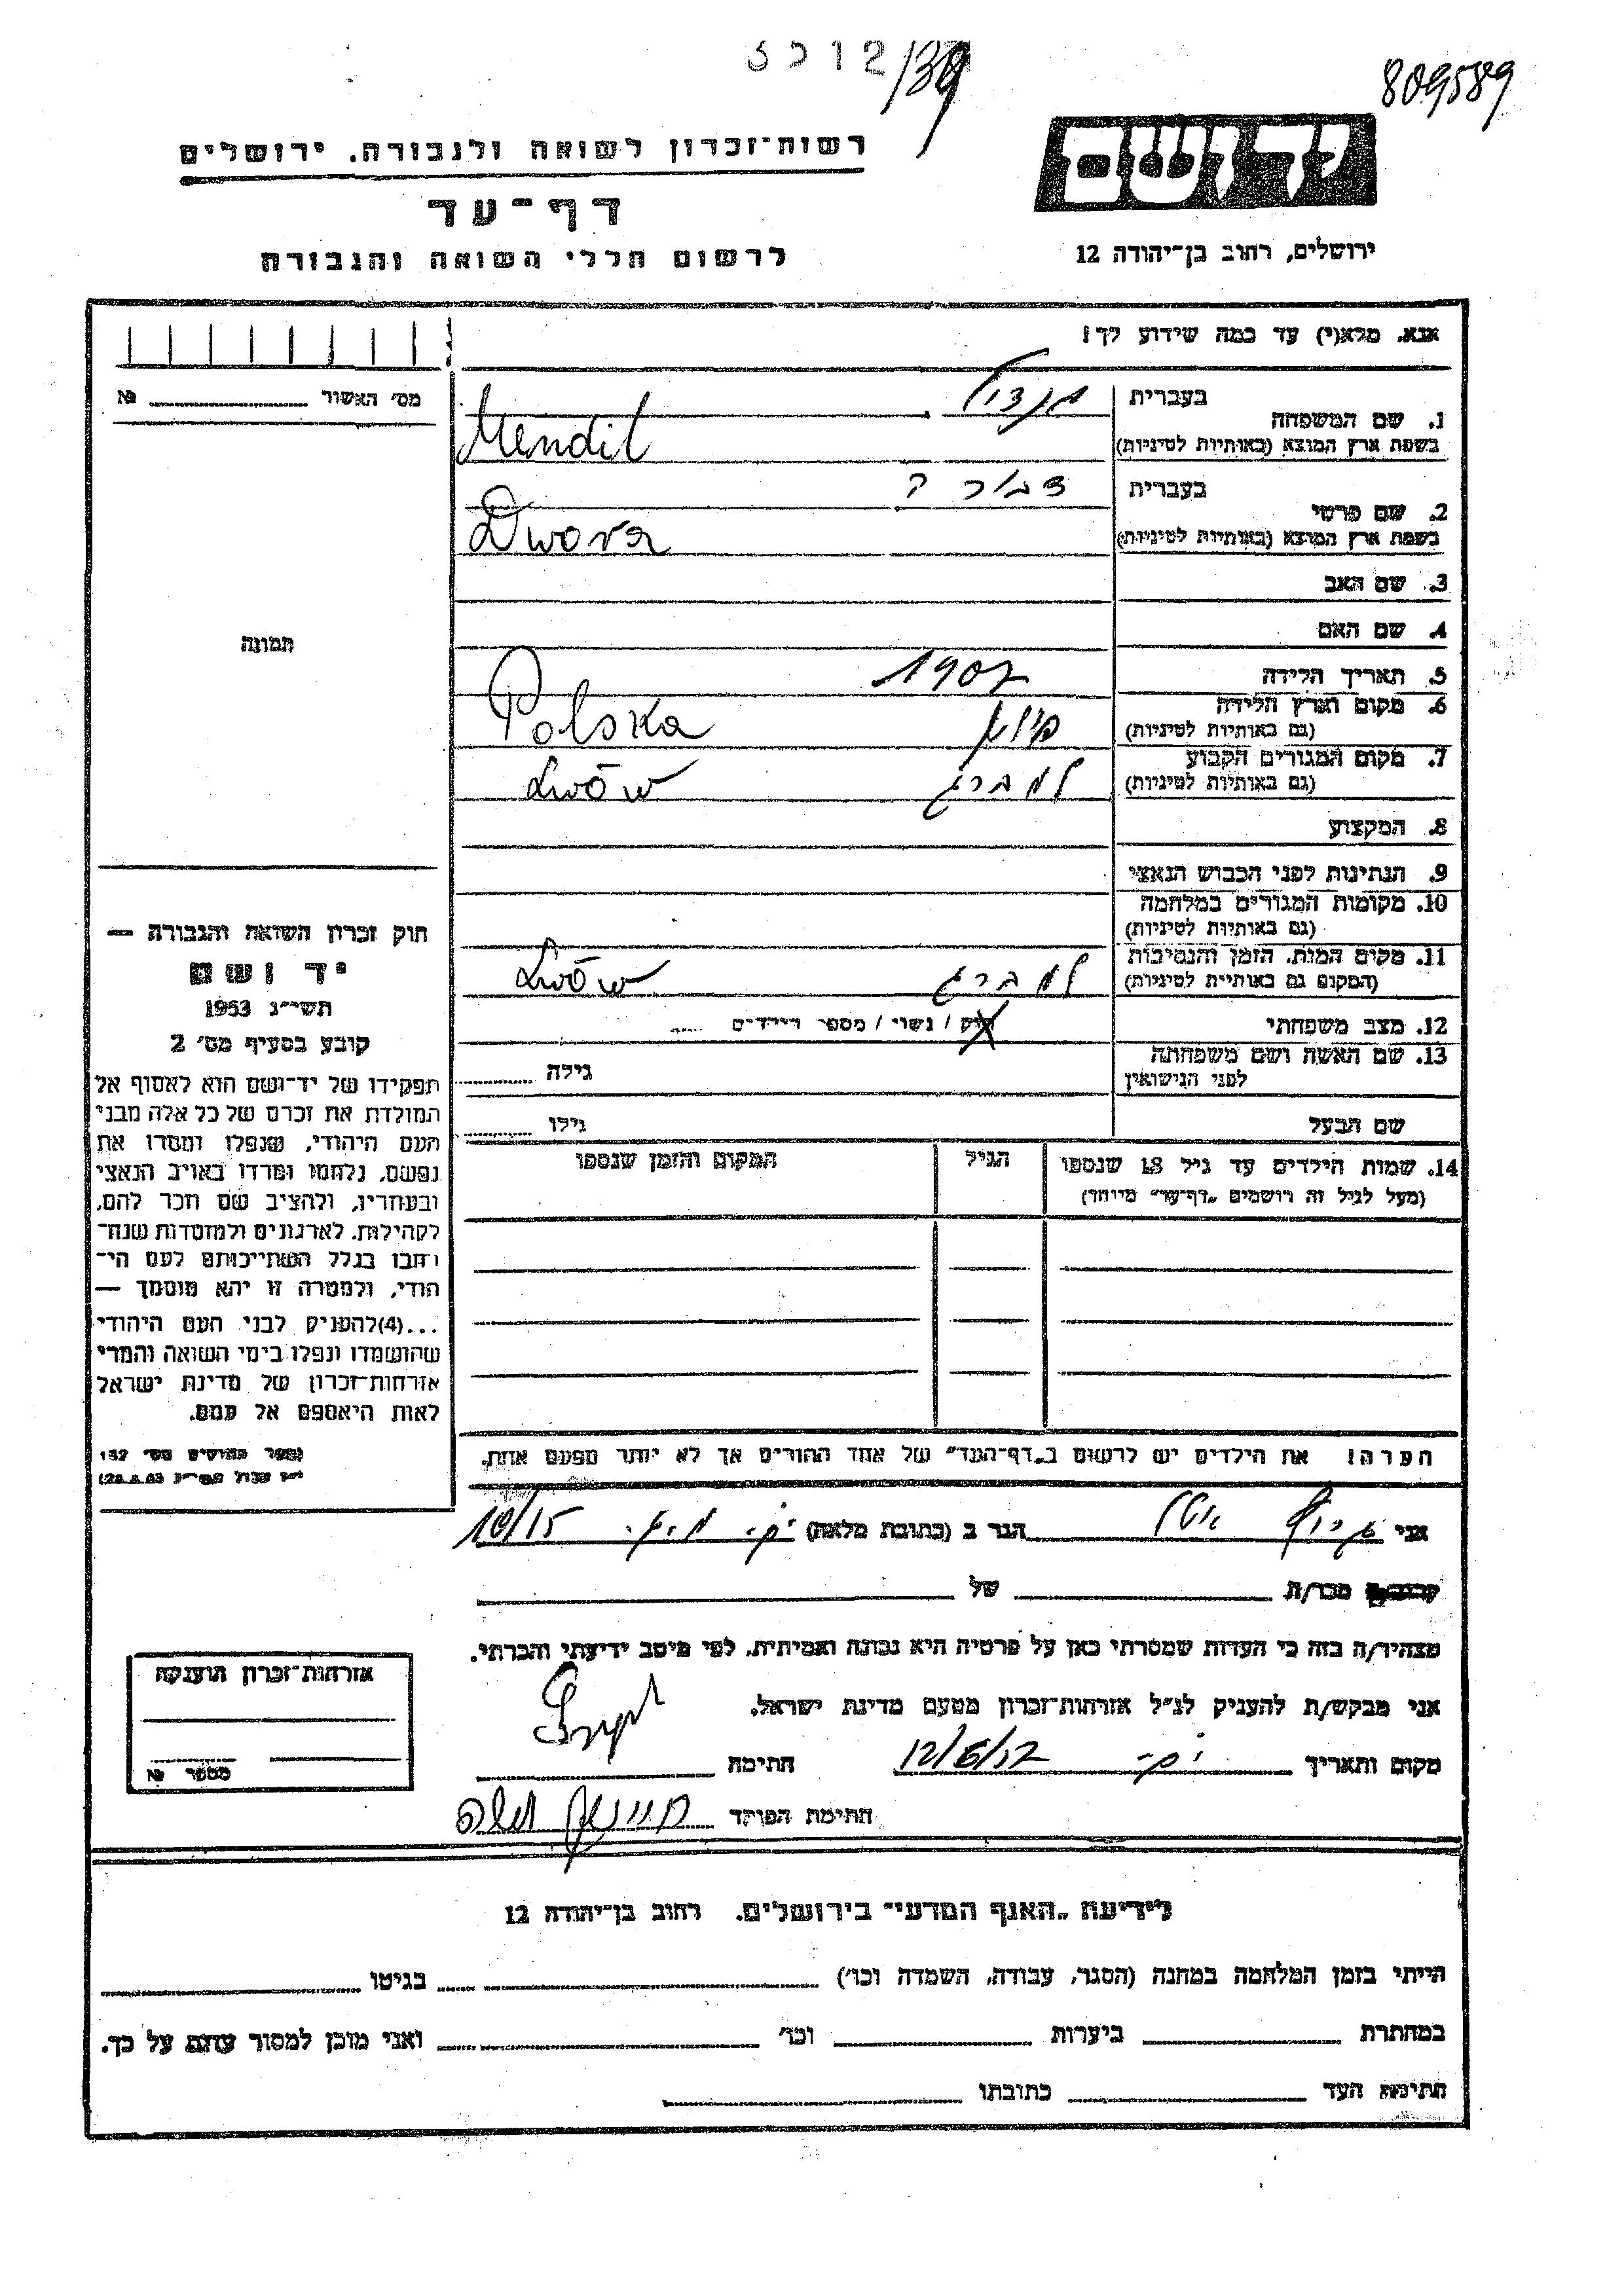 12/39
809589
יד ושם
רשות־זכרון לשואה ולגבורה. ירושלים
דף־עד
לרשום חללי השואה והגבורה
ירושלים, רחוב בן־יהודה 12
אנא, מלא(י) עד כמה שידוע לך!
מס׳ האשור № 
1. שם המשפחה
בעברית מנדיל
בשפת ארץ המוצא (באותיות לטיניות) Mendil
2. שם פרטי
בעברית דבורה
בשפת ארץ המוצא (באותיות לטיניות) Dwora
3. שם האב
4. שם האם
תמונה
5. תאריך הלידה 1907
6. מקום וארץ הלידה
(גם באותיות לטיניות) פולין Polska
7. מקום המגורים הקבוע
(גם באותיות לטיניות) למברג Lwów
8. המקצוע
9. הנתינות לפני הכבוש הנאצי
10. מקומות המגורים במלחמה
(גם באותיות לטיניות)
11. מקום המות, הזמן והנסיבות
(המקום גם באותיות לטיניות) למברג Lwów
12. מצב משפחתי רוק / נשוי / מספר הילדים
13. שם האשה ושם משפחתה
לפני הנישואין גילה
שם הבעל גילו
14. שמות הילדים עד גיל 18 שנספו הגיל המקום והזמן שנספו
(מעל לגיל זה רושמים „דף־עד״ מיוחד)
חוק זכרון השואה והגבורה —
יד ושם
תשי״ג 1953
קובע בסעיף מס׳ 2
תפקידו של יד־ושם הוא לאסוף אל
המולדת את זכרם של כל אלה מבני
העם היהודי, שנפלו ומסרו את
נפשם, נלחמו ומרדו באויב הנאצי
ובעוזריו, ולהציב שם וזכר להם,
לקהילות, לארגונים ולמוסדות שנח־
רבו בגלל השתייכותם לעם הי־
הודי, ולמטרה זו יהא מוסמך —
...(4)להעניק לבני העם היהודי
שהושמדו ונפלו בימי השואה והמרי
אזרחות־זכרון של מדינת ישראל
לאות היאספם אל עמם.
(ספר החוקים מס׳ 132
הערה! את הילדים יש לרשום ב„דף־העד״ של אחד ההורים אך לא יותר מפעם אחת.
אני הגר ב (כתובת מלאה) 10/15
קרוב/ה מכר/ת של
מצהיר/ה בזה כי העדות שמסרתי כאן על פרטיה היא נכונה ואמיתית, לפי מיטב ידיעתי והכרתי.
אני מבקש/ת להעניק לנ״ל אזרחות־זכרון מטעם מדינת ישראל.
מקום ותאריך חתימה
חתימת הפוקד
אזרחות־זכרון הוענקה
מספר №
לידיעת „האגף המדעי״ בירושלים. רחוב בן־יהודה 12
הייתי בזמן המלחמה במחנה (הסגר, עבודה, השמדה וכו׳) בגיטו
במחתרת ביערות וכו׳ ואני מוכן למסור עדות על כך.
חתימת העד כתובתו